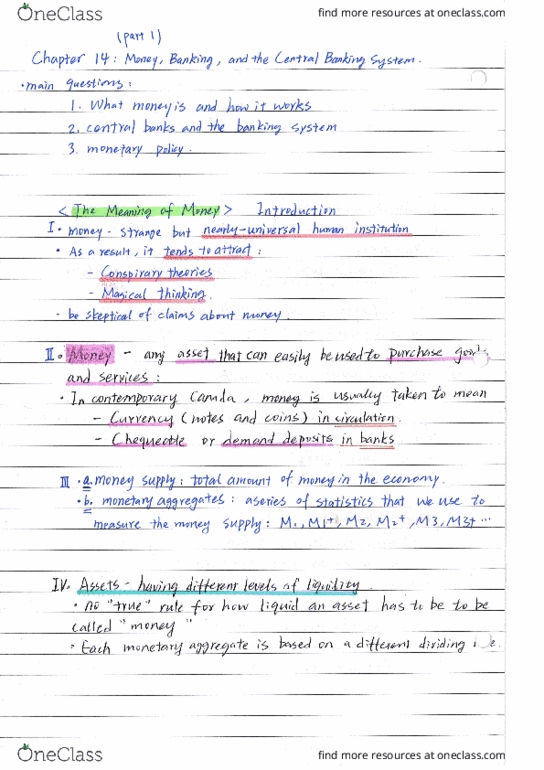 OneClass
find more resources at oneclass.com
(part 1)
Chapter 14: Money, Banking, and the Central Banking System.
• main questions:
1. What money is and how it works
2. central banks and the banking system
3. monetary policy.
< The Meaning of Money > Introduction
I • money - strange but nearly-universal human institution
• As a result, it tends to attract:
- Conspirary theories
- Magical thinking.
• be skeptical of claims about money.
II • Money - any asset that can easily be used to purchase goods
and services:
• In contemporary Canada, money is usually taken to mean
- Currency (notes and coins) in circulation.
- Chequeable or demand deposits in banks
III • a. money supply: total amount of money in the economy.
• b. monetary aggregates: a series of statistics that we use to
measure the money supply: M1, M1+, M2, M2+, M3, M3+ ...
IV. Assets - having different levels of liquidity
• no "true" rule for how liquid an asset has to be to be
called "money"
• Each monetary aggregate is based on a different dividing
OneClass
find more resources at oneclass.com